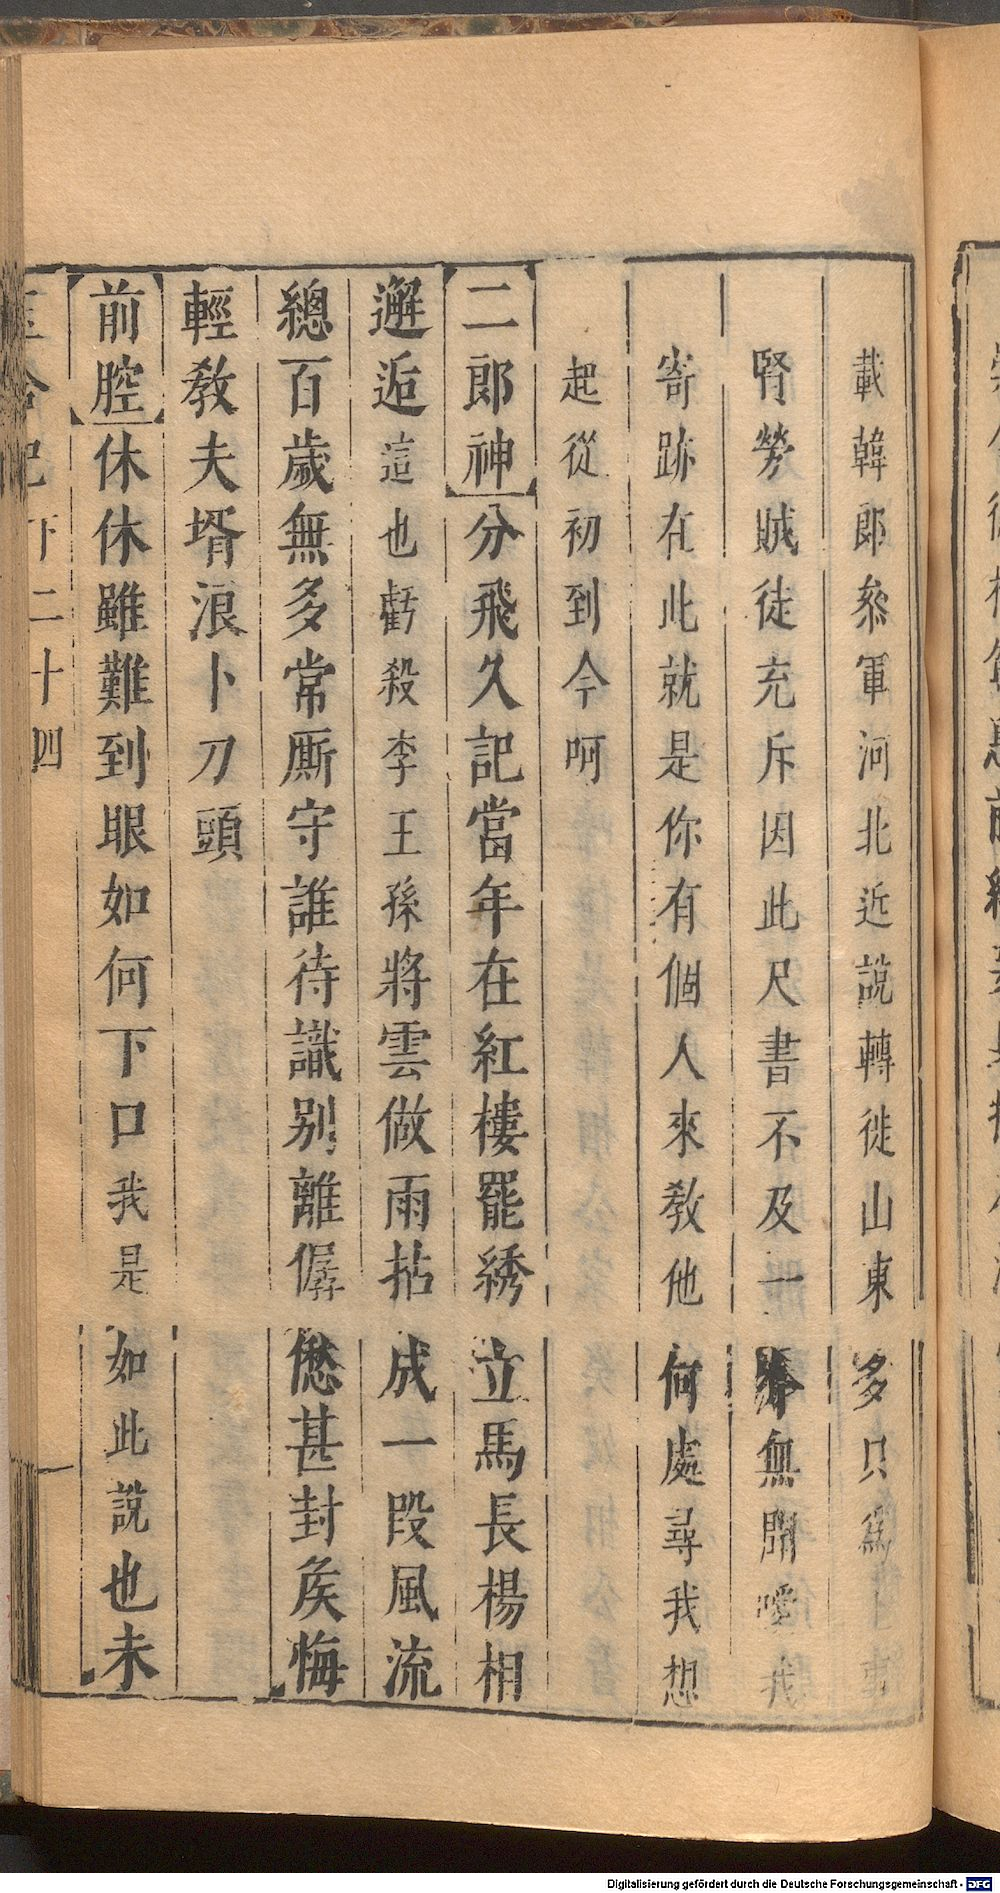 載韓郎叅軍河北近說轉徙山東多只爲
腎勞賊徒充斥因此尺書不及一 無聞噯我
寄跡在此就是你有個人來教他何處尋我想
起從初到今呵
二郎神分飛久記當年在紅樓罷綉立馬長楊相
邂逅這也虧殺李王孫將雲做雨拈成一段風流
總百歲無多常厮守誰待識別離僝僽甚封矦悔
輕教夫壻浪卜刀頭
前腔休休雖難到眼如何下口我是如此說也未
玉合記下二十四
Digitalisierung gefördert durch die Deutsche Forschungsgemeinschaft - DFG